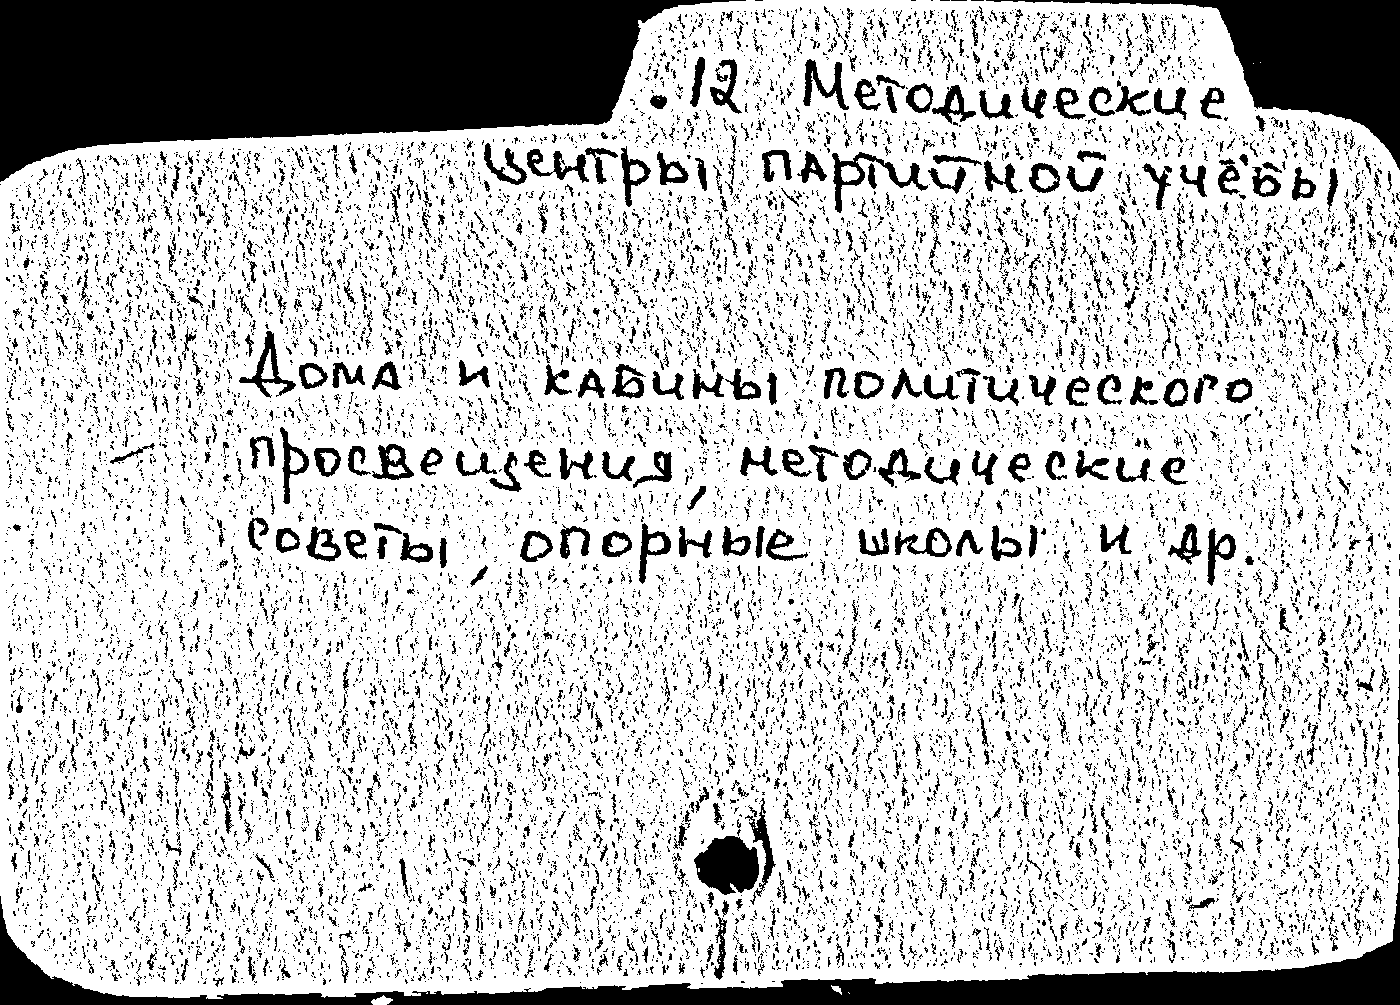 .12 Методические
центры партийной учёбы
Дома и кабины политического
просвещения, методические
советы, опорные школы и др.